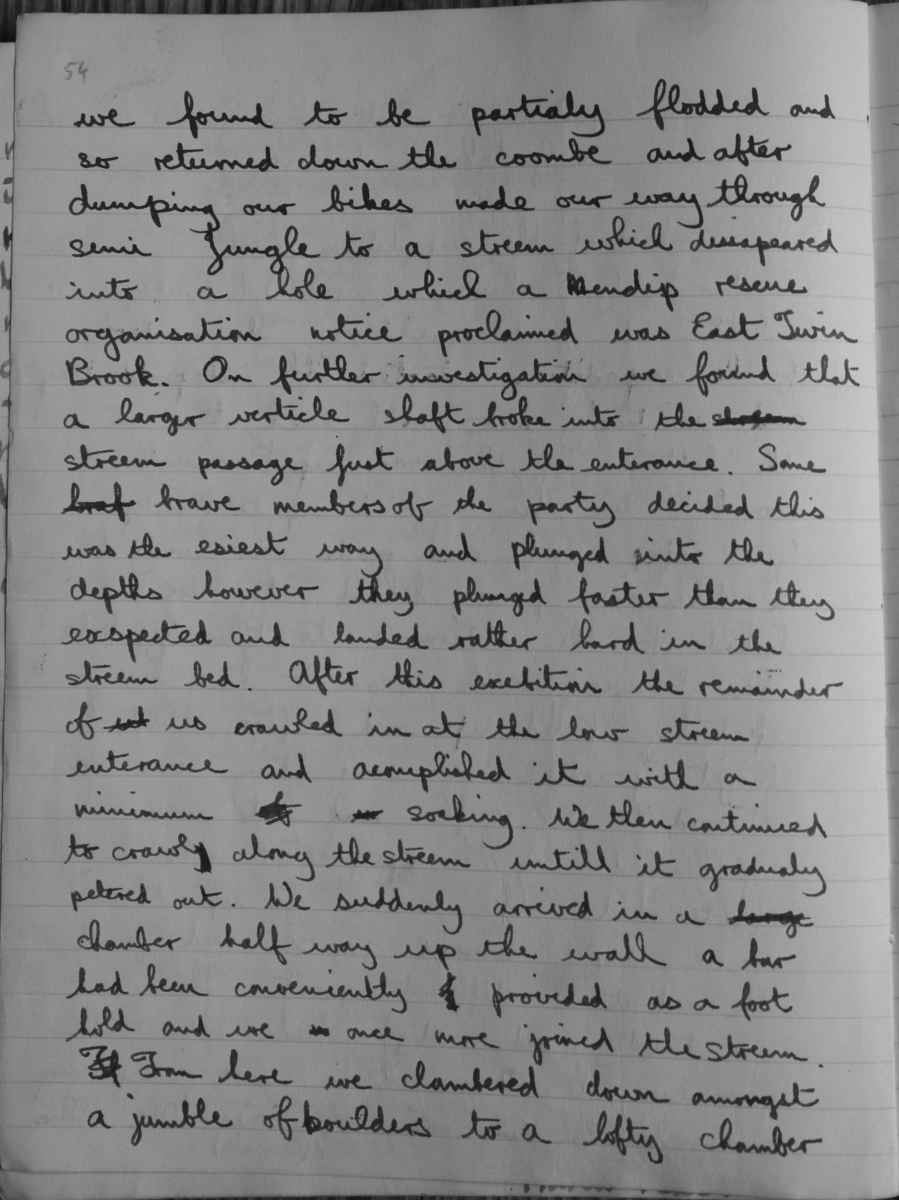 54
we found to be partialy flodded and
so returned down the coombe and after
dumping our bikes made our way through
semi Jungle to a streem which dissapeared
into a hole which a Mendip rescue
organisation notice proclaimed was East Twin
Brook. On further investigation we found that
a larger verticle shaft broke into the streem
streem passage just above the enterance. Some
braf brave members of the party decided this
was the esiest way and plunged into the
depths however they plunged faster than they
exspected and landed rather hard in the
streem bed. After this exebition the remainder
of us crawled in at the low streem
enterance and acomplished it with a
minimum of soaking. We then continued
to crawl along the streem untill it gradualy
petered out. We suddenly arrived in a large
chamber half way up the wall a bar
had been conveniently provided as a foot
hold and we once more joined the streem.
From here we clambered down amongst
a jumble of boulders to a lofty chamber